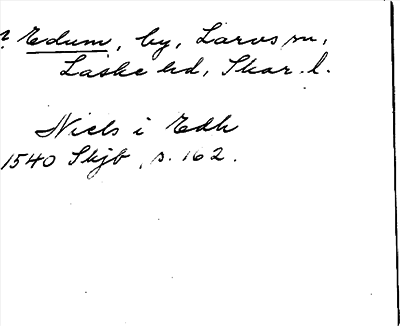 ? Edum, by, Larvs sn,
Laske hd, Skar. l.
Niels i Edh
1540 Skjb, s. 162.